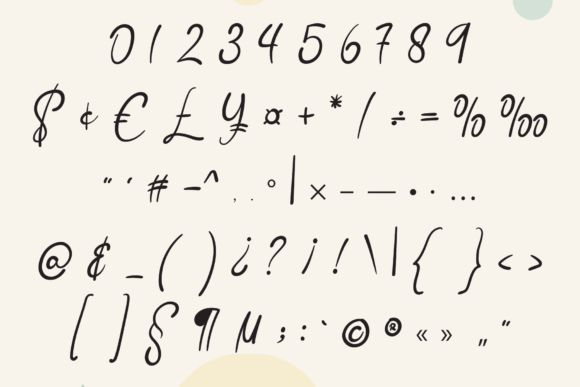 0 1 2 3 4 5 6 7 8 9
$ ¢ € £ ¥ ¤ + * / ÷ = % ‰
" ' # ¬ ^ , . ° | × – — • · …
@ & _ ( ) ¿ ? ¡ ! \ | { } < >
[ ] § ¶ µ ; : ` © ® « » „ "